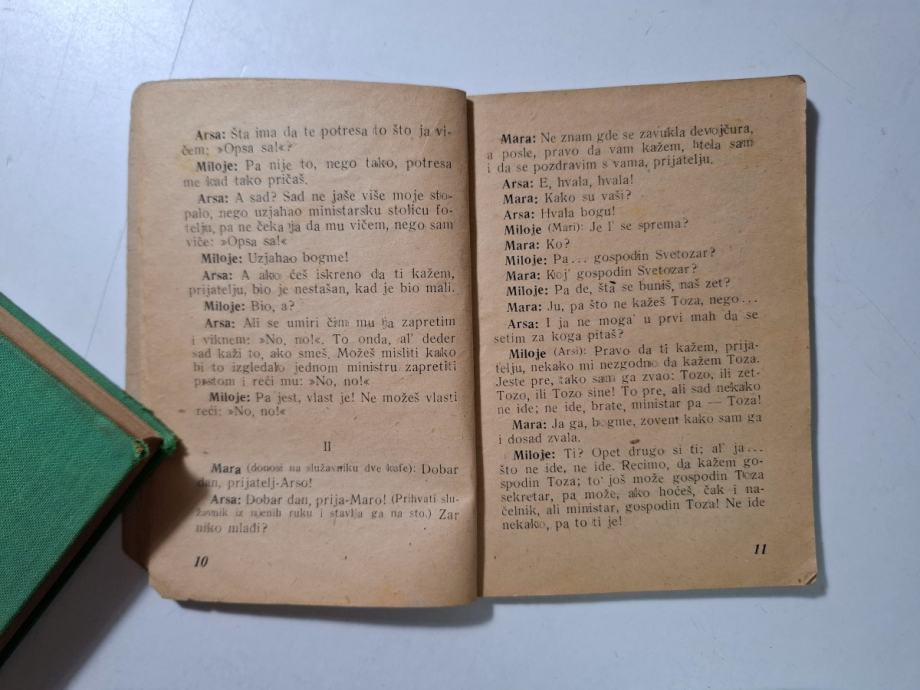 Arsa: Šta ima da te potresa to što ja vi-
čem: »Opsa sa!«?
Miloje: Pa nije to, nego tako, potresa
me kad tako pričaš.
Arsa: A sad? Sad ne jaše više moje sto-
palo, nego uzjahao ministarsku stolicu fo-
telju, pa ne čeka ja da mu vičem, nego sam
viče: »Opsa sa!«
Miloje: Uzjahao bogme!
Arsa: A ako ćeš iskreno da ti kažem,
prijatelju, bio je nestašan, kad je bio mali.
Miloje: Bio, a?
Arsa: Ali se umiri čim mu ja zapretim
i viknem: »No, no!«. To onda, al' deder
sad kaži to, ako smeš. Možeš misliti kako
bi to izgledalo jednom ministru zapretiti
prstom i reći mu: »No, no!«
Miloje: Pa jest, vlast je! Ne možeš vlasti
reći: »No, no!«
II
Mara (donosi na služavniku dve kafe): Dobar
dan, prijatelj-Arso!
Arsa: Dobar dan, prija-Maro! (Prihvati slu-
žavnik iz njenih ruku i stavlja ga na sto.) Zar
niko mlađi?
10
Mara: Ne znam gde se zavukla devojčura,
a posle, pravo da vam kažem, htela sam
i da se pozdravim s vama, prijatelju.
Arsa: E, hvala, hvala!
Mara: Kako su vaši?
Arsa: Hvala bogu!
Miloje (Mari): Je l' se sprema?
Mara: Ko?
Miloje: Pa... gospodin Svetozar?
Mara: Koj' gospodin Svetozar?
Miloje: Pa de, šta se buniš, naš zet?
Mara: Ju, pa što ne kažeš Toza, nego...
Arsa: I ja ne moga' u prvi mah da se
setim za koga pitaš?
Miloje (Arsi): Pravo da ti kažem, prija-
telju, nekako mi nezgodno da kažem Toza.
Jeste pre, tako sam ga zvao: Tozo, ili zet-
Tozo, ili Tozo sine! To pre, ali sad nekako
ne ide; ne ide, brate, ministar pa — Toza!
Mara: Ja ga, bogme, zovem kako sam ga
i dosad zvala.
Miloje: Ti? Opet drugo si ti; al' ja...
što ne ide, ne ide. Recimo, da kažem go-
spodin Toza; to' još može gospodin Toza
sekretar, pa može, ako hoćeš, čak i na-
čelnik, ali ministar, gospodin Toza! Ne ide
nekako, pa to ti je!
11